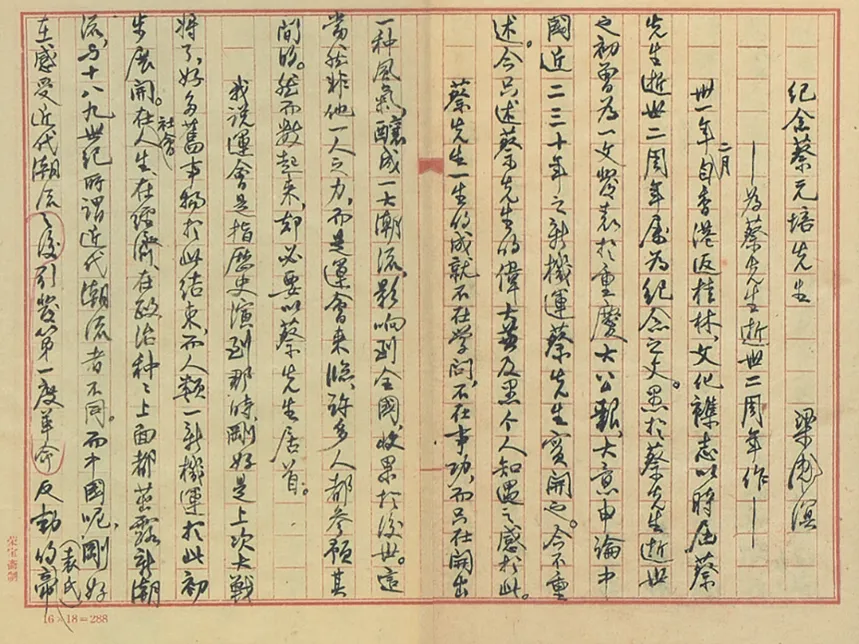 纪念蔡元培先生　梁漱溟
——为蔡先生逝世二周年作——
卅一年二月自香港返桂林，文化雜志以時屆蔡
先生逝世二周年属为纪念之文。愚於蔡先生逝世
之初曾为一文發表於重慶大公報，大意申論中
國近二三十年之新機運蔡先生實開之。今不重
述。今只述蔡先生的偉大兼及愚个人知遇之感於此。
蔡先生一生的成就不在学问，不在事功，而只在開出
一种風氣，釀成一大潮流，影响到全國，收果於後世。這
當然非他一人之力，而是運會來臨，許多人都参预其
間的。然而數起來，却必要以蔡先生居首。
我说運會是指歷史演到那時，剛好是上次大戰
将了，好多舊事物於此结束，而人類一新機運於此初
步展開。在人生，社會，在經濟，在政治种々上面都茁露新潮
流，与十八九世纪時謂近代潮流者不同。而中國呢，剛好
在感受近代潮流之後引發第一度革命反動的袁氏帝
荣宝斋制
16×18=288